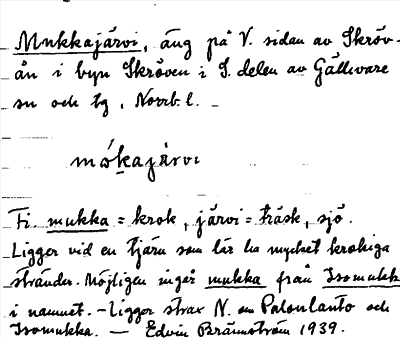 Mukkajärvi, äng på V. sidan av Skröv-
ån i byn Skröven i S. delen av Gällivare
sn och tg, Norrb. l.
mókajärvi
Fi. mukka = krok, järvi = träsk, sjö.
Ligger vid en tjärn som lär ha mycket krokiga
stränder. Möjligen ingår mukka från Isomukka
i namnet. – Ligger strax N. om Palonlanto och
Isomukka. — Edvin Brännström 1939.